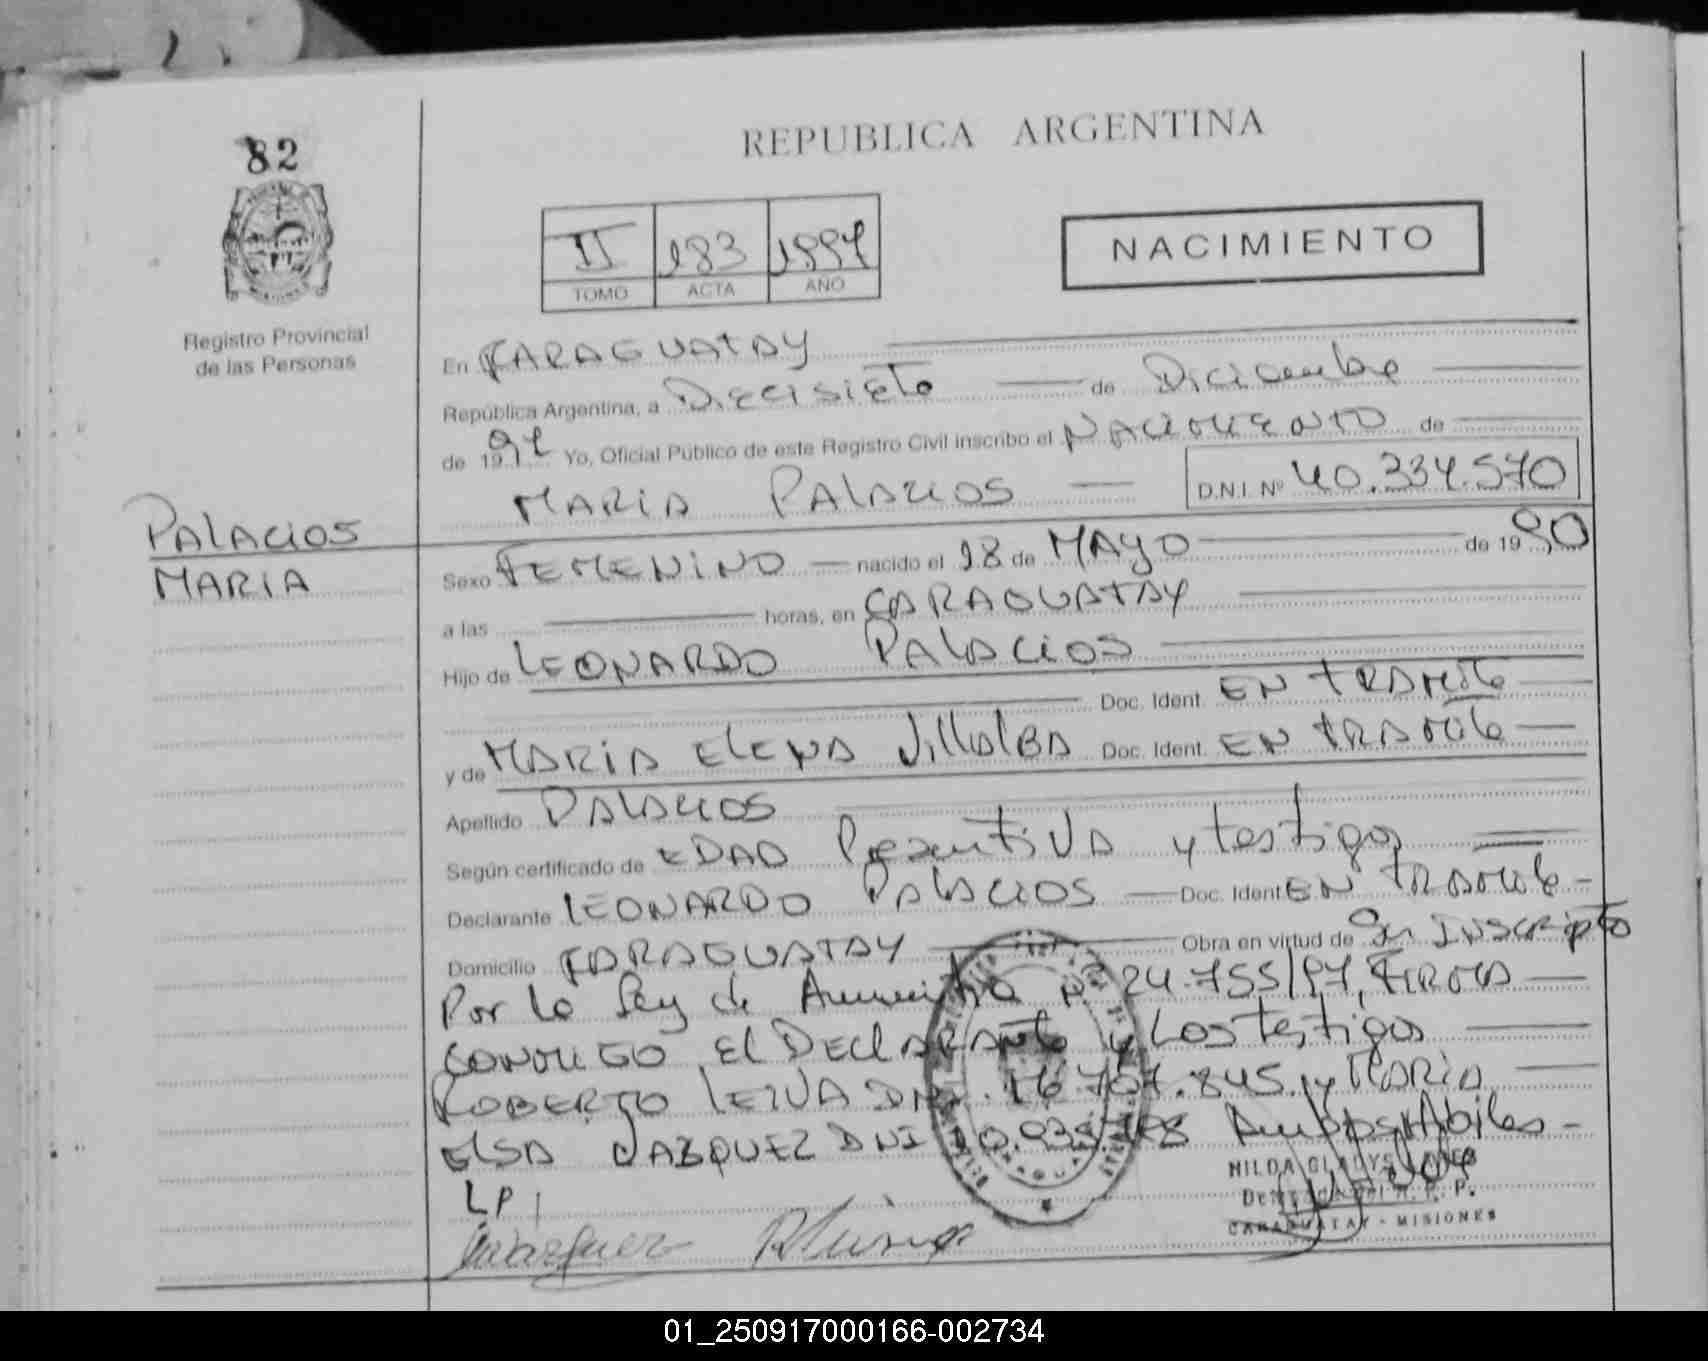 82
REPUBLICA ARGENTINA
II 183 1997
TOMO ACTA AÑO
NACIMIENTO
Registro Provincial
de las Personas
En CARAGUATAY
República Argentina, a DIECISIETE de Diciembre
de 1997 Yo, Oficial Público de este Registro Civil inscribo el NACIMIENTO de
MARIA PALACIOS D.N.I. Nº 40.334.570
PALACIOS
MARIA
Sexo FEMENINO nacido el 18 de MAYO de 1990
a las horas, en CARAGUATAY
Hijo de LEONARDO PALACIOS
Doc. Ident. EN TRAMITE
y de MARIA ELENA VILLALBA Doc. Ident. EN TRAMITE
Apellido PALACIOS
Según certificado de EDAD PresuntiVA y testigos
Declarante LEONARDO PALACIOS Doc. Ident. EN TRAMITE
Domicilio CARAGUATAY Obra en virtud de Ser INScripto
Por la Ley de Amnistia Nº 24.755/97, FIRMA
CONMIGO El DEClARANTE y Los testigos
ROBERTO LEIVA DNI. 16.707.845. y MARIA
ELSA VAZQUEZ DNI Ambos Habiles
LP
HILDA GLADYS
CARAGUATAY - MISIONES
01_250917000166-002734